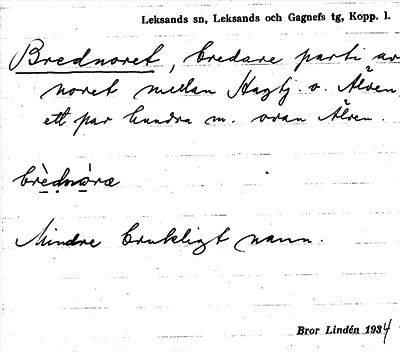 Leksands sn, Leksands och Gagnefs tg, Kopp. l.
Brednoret, bredare parti av
noret mellan Hagtj. o. Älven,
ett par hundra m. ovan Älven.
brèdnòræ
Mindre brukligt namn.
Bror Lindén 1934